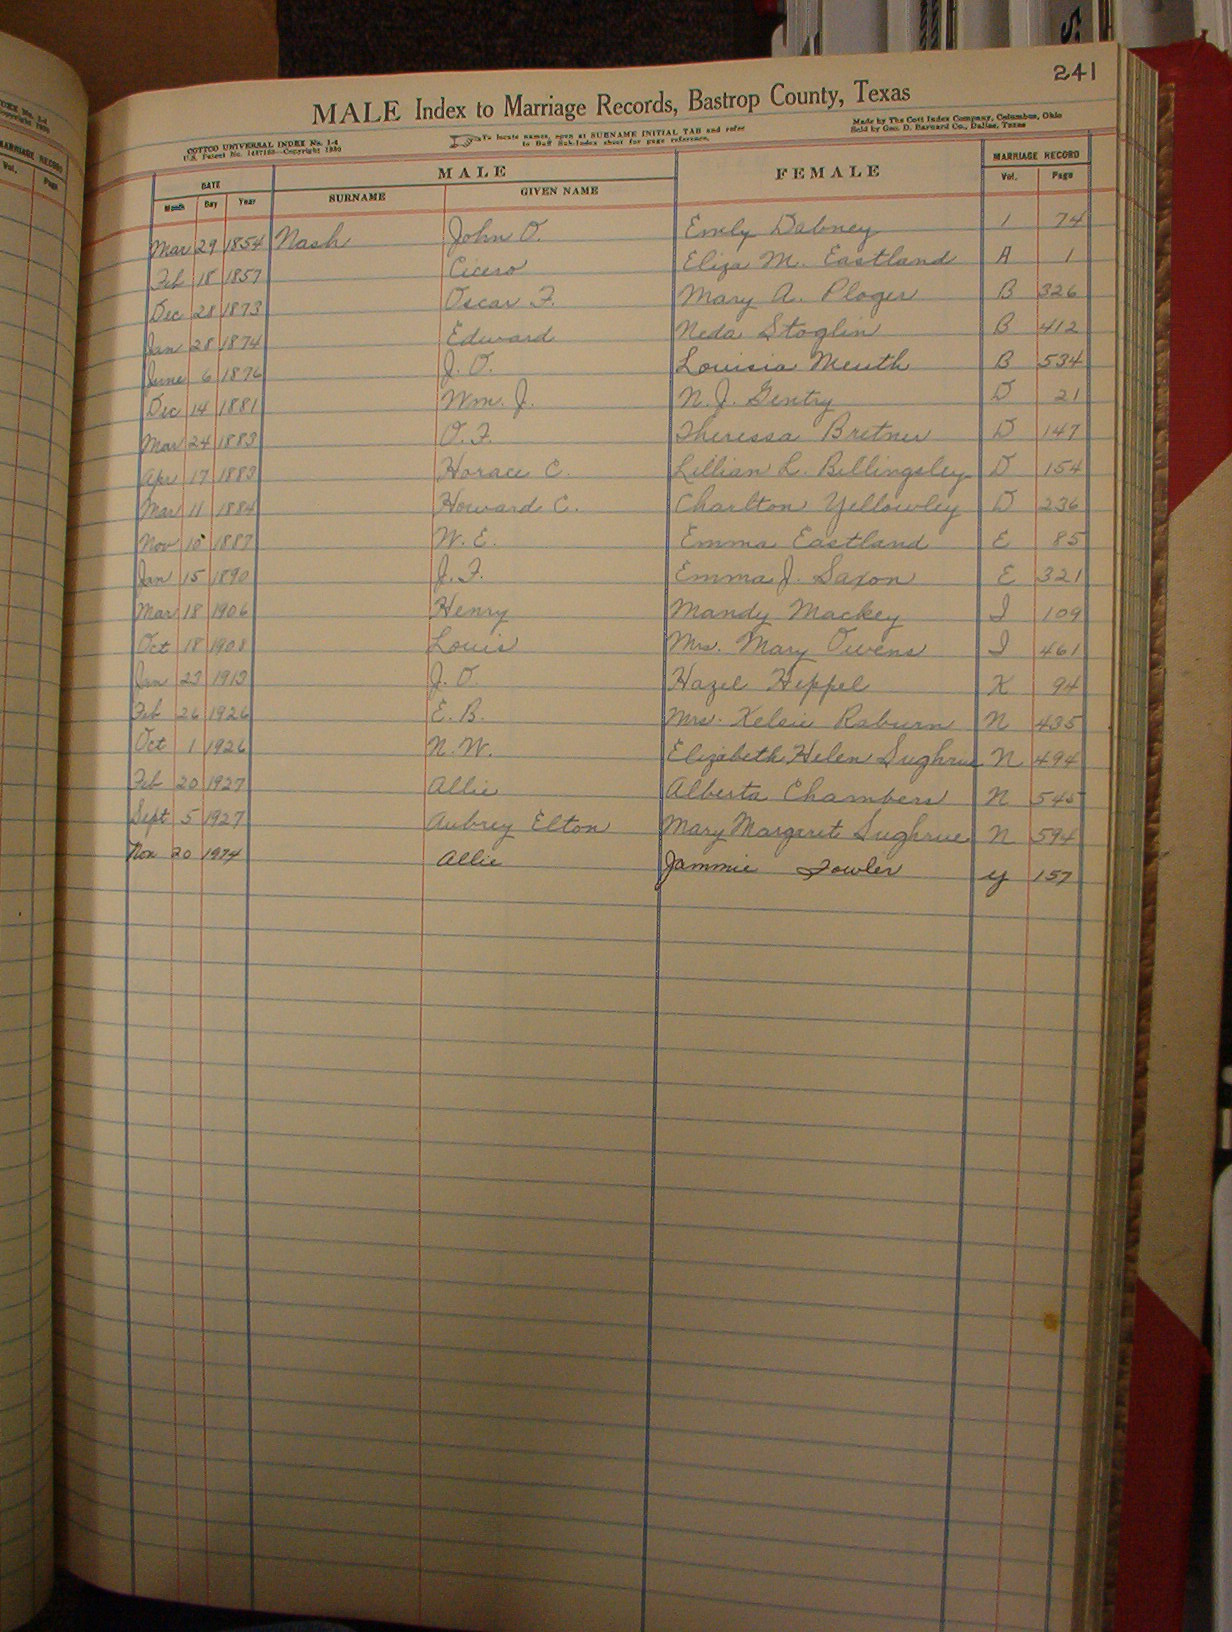 241
MALE Index to Marriage Records, Bastrop County, Texas
COTTCO UNIVERSAL INDEX No. 1-4
U.S. Patent No. 1487183—Copyright 1930
To locate names, open at SURNAME INITIAL TAB and refer
to Buff Sub-Index sheet for page reference.
Made by The Cott Index Company, Columbus, Ohio
Sold by Geo. D. Barnard Co., Dallas, Texas
DATE MALE FEMALE MARRIAGE RECORD
Month Day Year SURNAME GIVEN NAME Vol. Page
Mar 29 1854 Nash John O. Emily Dabney 1 74
Feb 18 1857 Cicero Eliza M. Eastland A 1
Dec 28 1873 Oscar F. Mary A. Ploger B 326
Jan 28 1874 Edward Neda Stoglin B 412
June 6 1876 J. O. Louisia Meuth B 534
Dec 14 1881 Wm. J. N. J. Gentry D 21
Mar 24 1883 O. F. Theressa Bretner D 147
Apr 17 1883 Horace C. Lillian L. Billingsley D 154
Mar 11 1884 Howard C. Charlton Yellowley D 236
Nov 1887 W. E. Emma Eastland E 85
Jan 15 1890 J. F. Emma J. Saxon E 321
Mar 18 1906 Henry Mandy Mackey I 109
Oct 18 1908 Louis Mrs. Mary Owens I 461
Jan 23 1913 J. O. Hazel Heppel K 94
Feb 26 1926 E. B. Mrs. Kelsie Raburn N 435
Oct 1 1926 N. W. Elizabeth Helen Sughrue N 494
Feb 20 1927 Allie Alberta Chambers N 545
Sept 5 1927 Aubrey Elton Mary Margaret Sughrue N 594
Nov 20 1974 Allie Jammie Fowler Y 157
MARRIAGE RECORD
Vol. Page